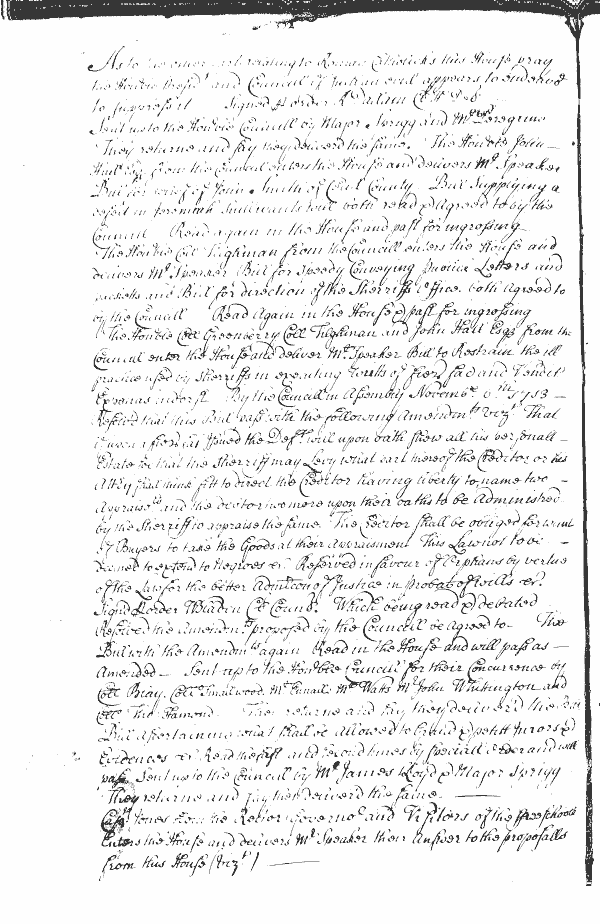 As to the other part relating to Roman Catholicks this House pray
the Honble Presidt and Council if such an evil appears to endeavour
to suppress it Signed p order
Sent up to the Honble Councill by Major Sprigg and Mr Peregrine
They returne and say they delivered the same. The Honble John
Hall Esqr from the Council enters the House and delivers Mr Speaker
Bill for relief of John Smith of Cecil County Bill Supplying a
defect in Jeremiah will both read & Agreed to by the
Council Read again in the House and past for ingrossing
The Honble Coll Tilghman from the Councill enters the House and
delivers Mr Speaker Bill for Speedy Conveying Publick Letters and
packetts and Bill for direction of the Sherriffs Office both Agreed to
by the Councill Read Again in the House & past for ingrossing
The Honble Coll Greenberry Coll Tilghman and John Hall Esqs from the
Council enter the House and deliver Mr Speaker Bill to Restrain the ill
practice used by Sherriffs in executing Writts of fieri facias and Vendit
Exponas indorst By the Councill in Assembly Novembr
Resolved that this Bill pass with the following Amendmts vizt That
the Deft will upon oath shew all his personall
Estate so that the Sherriff may Levy what part thereof the Creditor or his
Attry shall think fitt to direct the Creditor having liberty to name two
Appraisrs and the debtor two more upon their oaths to be Administred
by the Sherriff to appraise the same The Creditor shall be obliged for want
of Buyers to take the Goods at their Appraisment This Law not to be
to extend to Negroes &c. Reserved in favour of Orphans by vertue
of the Law for the better Admtcon of Justice in Probat of wills &c.
Signd p order W Bladen Cl Counl. Which being read & debated
Resolved the Amendmts proposed by the Councill be Agreed to The
Bill with the Amendmts again Read in the House and will pass as
Amended Sent up to the Honble Council for their Concurrence by
Coll Bray, Coll Smallwood Mr Mr Watts Mr John Whitington and
Coll Tho Hamond They returne and say they delivered the same
Bill Ascertaining what shall be allowed to Grand & petitt Jurors &
Evidences &c. Read the first and second times by speciall order and will
pass Sent up to the Council by Mr James Lloyd & Major Sprigg
They returne and say they delivered the same
Capt Jones from the Rector Governors and Visitors of the ffree schools
Enters the House and delivers Mr Speaker their Answer to the proposalls
from this House (vizt)